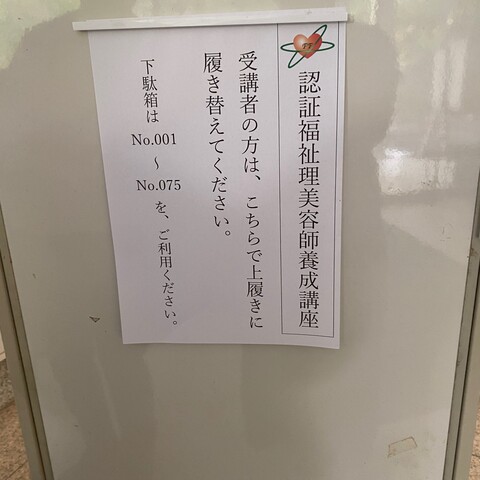 認証福祉理美容師養成講座
受講者の方は、こちらで上履きに
履き替えてください。
下駄箱は No.001 ～ No.075 を、ご利用ください。